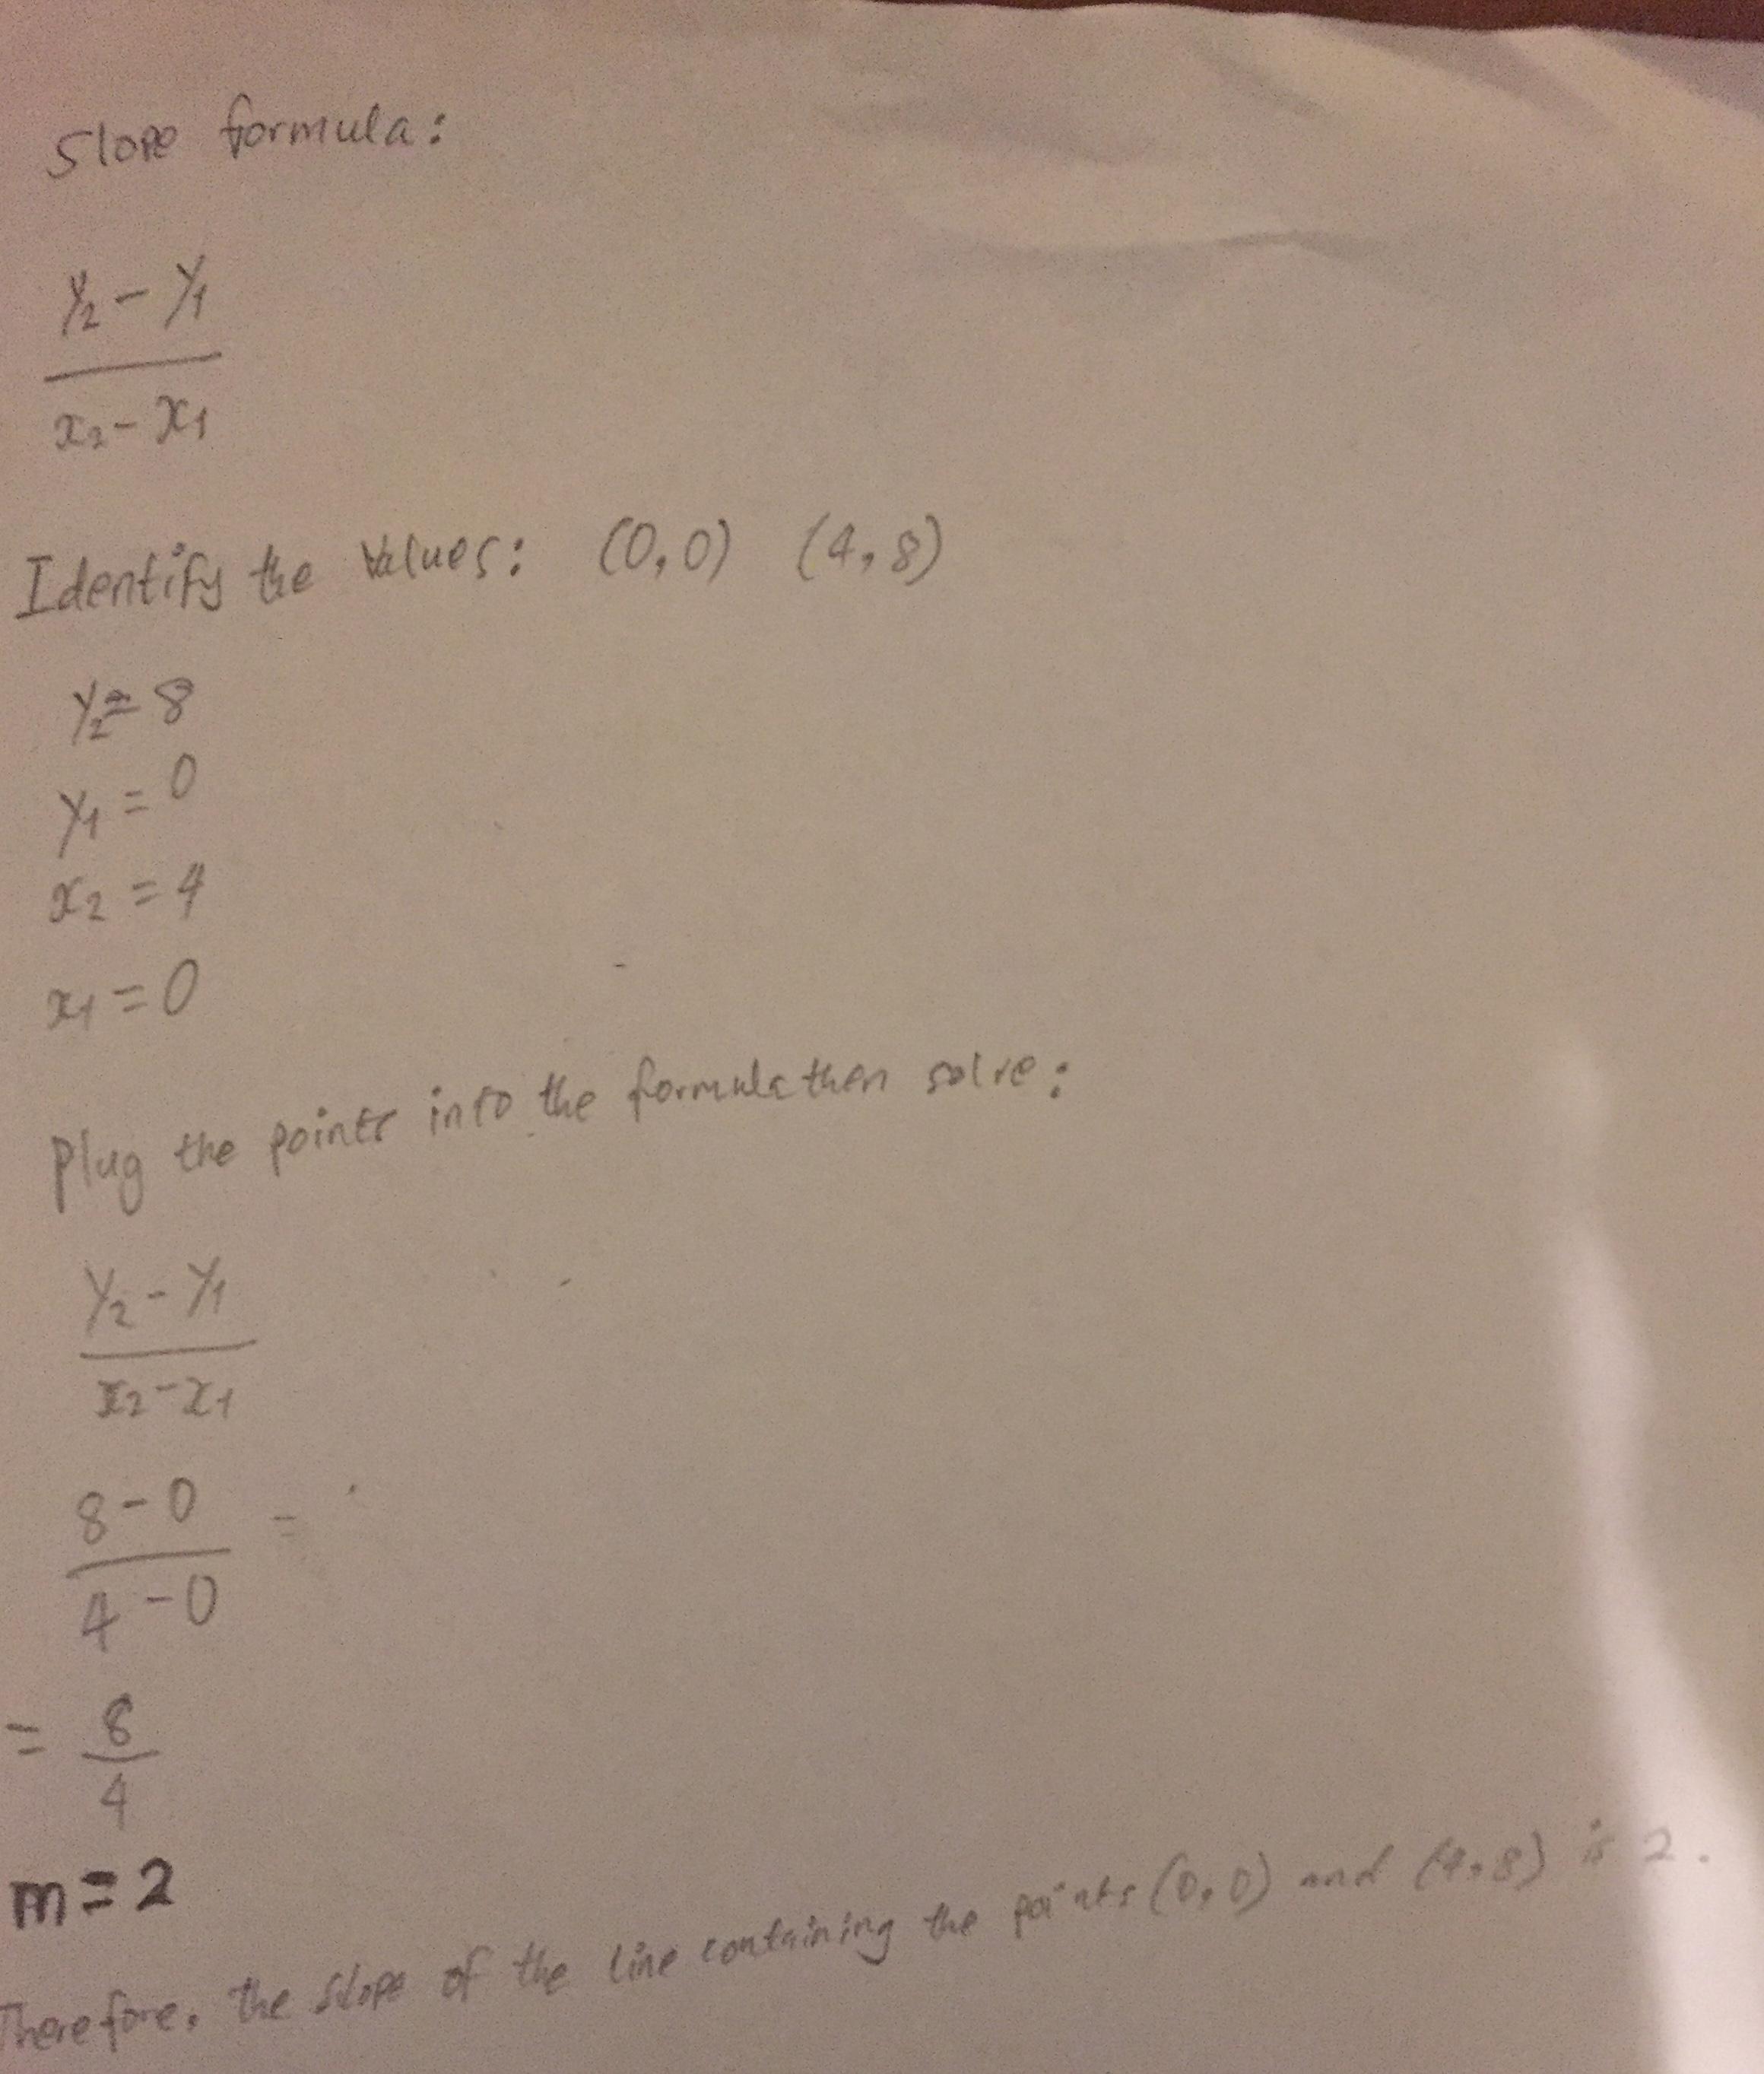 Slope formula:
y₂ - y₁
x₂ - x₁
Identify the values: (0,0) (4,8)
y₂ = 8
y₁ = 0
x₂ = 4
x₁ = 0
Plug the points into the formula then solve:
y₂ - y₁
x₂ - x₁
8 - 0 =
4 - 0
= 8
4
m = 2
Therefore, the slope of the line containing the points (0,0) and (4,8) is 2.